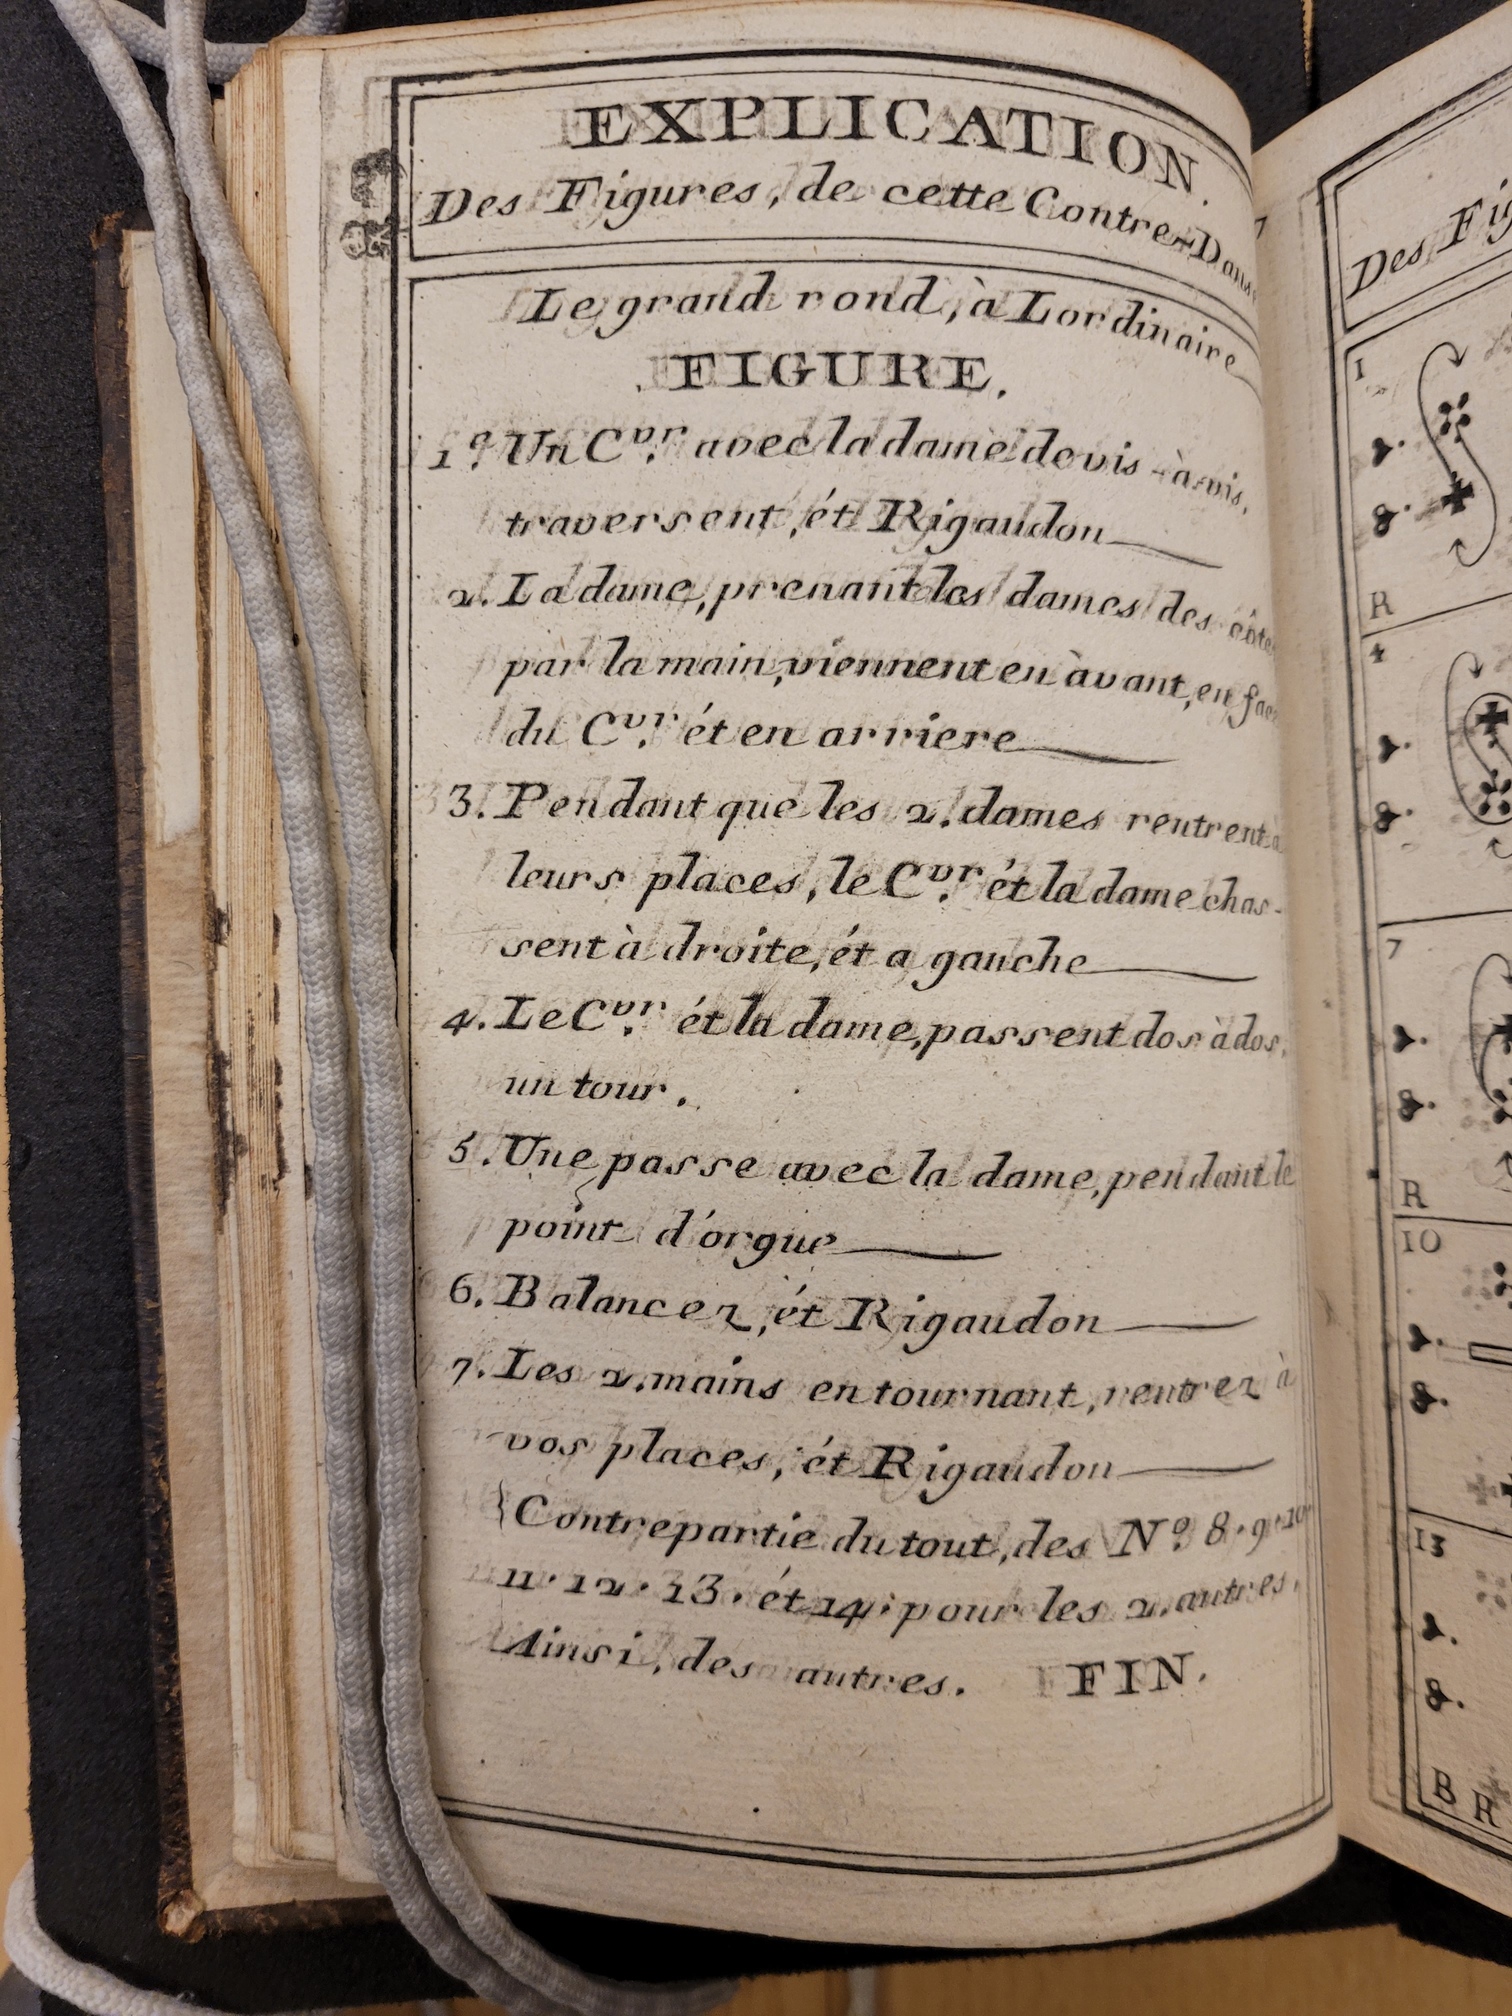 EXPLICATION.
Des Figures, de cette Contre-Danse
Le grand rond, à Lordinaire
FIGURE.
1º. Un Cvr. avec la dame de vis-à-vis,
traversent, ét Rigaudon
2. La dame, prenant les dames des côtés
par la main, viennent en àvant, en face
du Cvr. ét en arriere
3. Pendant que les 2. dames rentrent à
leurs places, le Cvr. ét la dame chas-
sent à droite, ét a gauche
4. Le Cvr. ét la dame, passent dos à dos,
un tour.
5. Une passe avec la dame, pendant le
point d'orgue
6. Balancez, ét Rigaudon
7. Les 2. mains en tournant, rentrez à
vos places, ét Rigaudon
Contrepartie du tout, des Nº. 8. 9. 10
11. 12. 13. ét 14. pour les 2. autres.
Ainsi, des autres. FIN.
Des Fig
1
R
4
7
R
10
13
B R